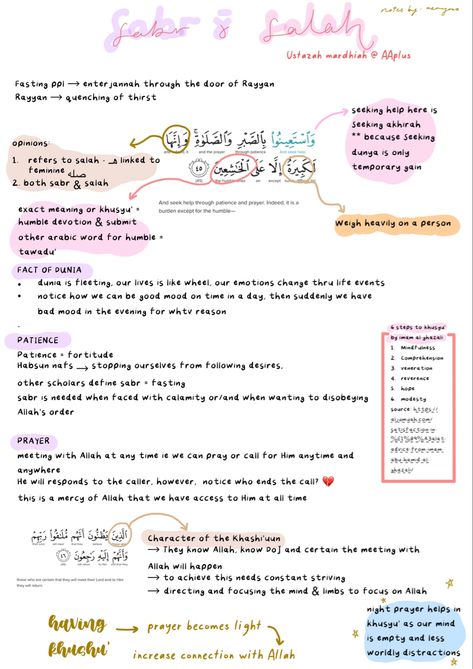 sabr & salah
notes by:
Ustazah mardhiah @ AAplus
Fasting ppl → enter jannah through the door of Rayyan
Rayyan → quenching of thirst
seeking help here is
seeking akhirah
** because seeking
dunya is only
temporary gain
وَاسْتَعِينُوا بِالصَّبْرِ وَالصَّلَوٰةِ ۚ وَإِنَّهَا
لَكَبِيرَةٌ إِلَّا عَلَى الْخَٰشِعِينَ ٤٥
And seek help through patience and prayer. Indeed, it is a
burden except for the humble—
opinions:
1. refers to salah - ها linked to
feminine صلاة
2. both sabr & salah
exact meaning or khusyu' =
humble devotion & submit
other arabic word for humble =
tawadu'
weigh heavily on a person
FACT OF DUNIA
• dunia is fleeting, our lives is like wheel, our emotions change thru life events
• notice how we can be good mood on time in a day, then suddenly we have
bad mood in the evening for whtv reason
PATIENCE
Patience = fortitude
Habsun nafs → stopping ourselves from following desires,
other scholars define sabr = fasting
sabr is needed when faced with calamity or/and when wanting to disobeying
Allah's order
6 steps to khusyu'
by imam al ghazali
1. Mindfulness
2. Comprehension
3. veneration
4. reverence
5. hope
6. modesty
source https://
PRAYER
meeting with Allah at any time ie we can pray or call for Him anytime and
anywhere
He will responds to the caller, however, notice who ends the call? 💔
this is a mercy of Allah that we have access to Him at all time
الَّذِينَ يَظُنُّونَ أَنَّهُم مُّلَٰقُوا رَبِّهِمْ
وَأَنَّهُمْ إِلَيْهِ رَٰجِعُونَ ٤٦
those who are certain that they will meet their Lord and to Him
they will return.
Character of the Khashi'uun
→ They know Allah, know DOJ and certain the meeting with
Allah will happen
→ to achieve this needs constant striving
→ directing and focusing the mind & limbs to focus on Allah
having
khushu'
→ prayer becomes light
increase connection with Allah
night prayer helps in
khusyu' as our mind
is empty and less
worldly distractions